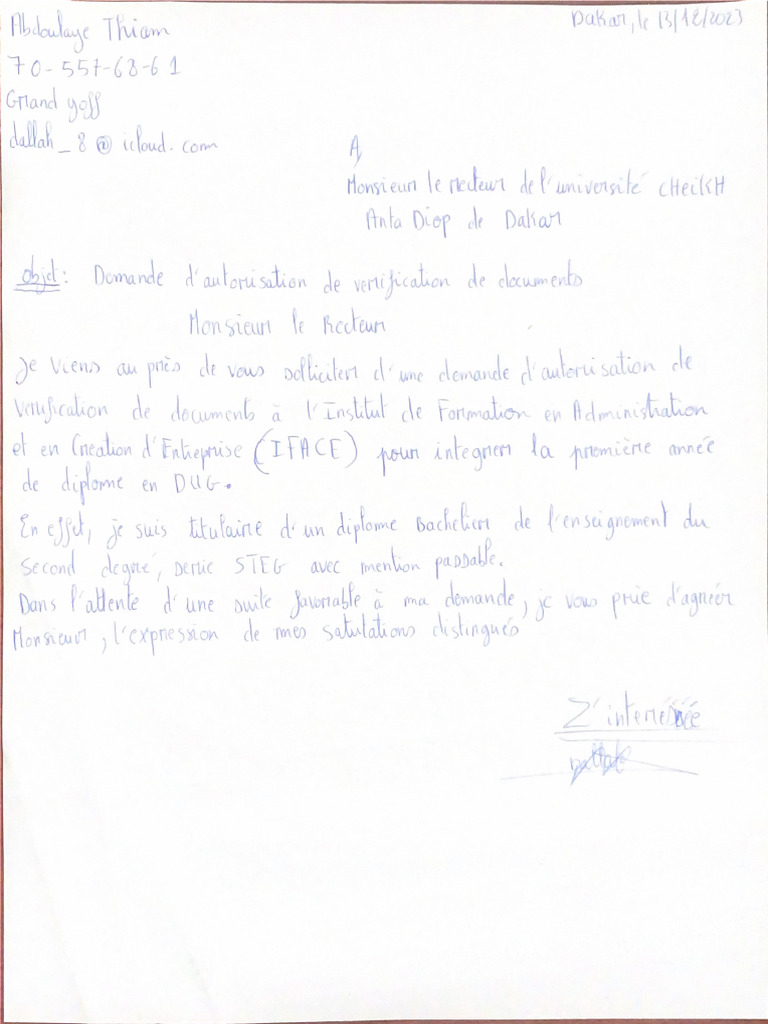 Abdoulaye Thiam
Dakar, le 13/12/2023
70-557-68-61
Grand yoff
dallah_8@icloud.com
A
Monsieur le recteur de l'université CHeiKH
Anta Diop de Dakar
objet: Demande d'autorisation de verification de documents
Monsieur le Recteur
Je viens au près de vous solliciter d'une demande d'autorisation de
verification de documents à l'Institut de Formation en Administration
et en Creation d'Entreprise (IFACE) pour integrer la première année
de diplome en DUG.
En effet, je suis titulaire d'un diplome Bachelier de l'enseignement du
Second degré, serie STEG avec mention passable.
Dans l'attente d'une suite favorable à ma demande, je vous prie d'agréér
Monsieur, l'expression de mes satulations distingués